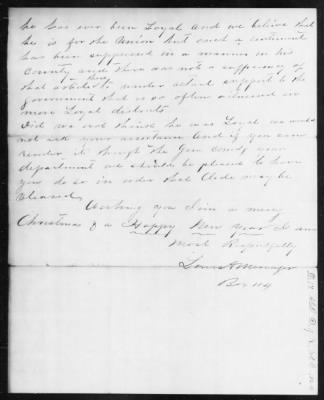 he has ever been Loyal and we believe that
he is for the Union but such a sentiment
has been suppressed in a manner in his
County and there was not a sufficiency of
that there to render actual support to the
Government that is so often witnessed in
more Loyal districts.
Did we not think he was Loyal we would
not ask your assistance And if you can
render it through the Gen Comdg your
department we should be pleased to have
you do so in order that Clade may be
released.
Wishing you Sim a merry
Christmas & a Happy New Year I am
Most Respectfully
Box 114